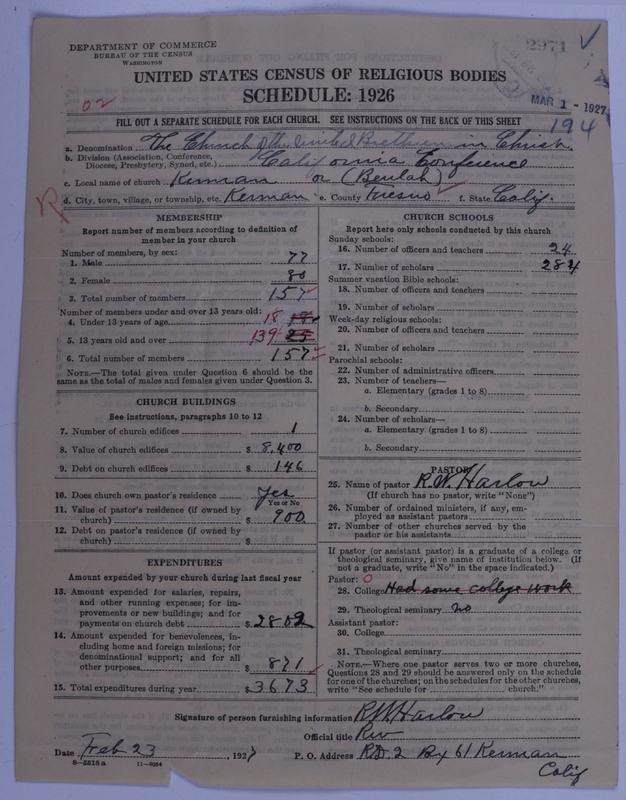 DEPARTMENT OF COMMERCE
BUREAU OF THE CENSUS
WASHINGTON
2971
UNITED STATES CENSUS OF RELIGIOUS BODIES
SCHEDULE: 1926
02
MAR 1 - 1927
FILL OUT A SEPARATE SCHEDULE FOR EACH CHURCH. SEE INSTRUCTIONS ON THE BACK OF THIS SHEET
194
a. Denomination The Church of the United Brethren in Christ.
b. Division (Association, Conference, Diocese, Presbytery, Synod, etc.) California Conference
c. Local name of church Kerman or (Beulah)
R
d. City, town, village, or township, etc. Kerman e. County Fresno f. State Calif.
MEMBERSHIP
Report number of members according to definition of
member in your church
Number of members, by sex:
1. Male 77
2. Female 80
3. Total number of members 157
Number of members under and over 13 years old:
4. Under 13 years of age 18
5. 13 years old and over 139 25
6. Total number of members 157
NOTE.—The total given under Question 6 should be the
same as the total of males and females given under Question 3.
CHURCH BUILDINGS
See instructions, paragraphs 10 to 12
7. Number of church edifices 1
8. Value of church edifices $ 8,400
9. Debt on church edifices $ 146
10. Does church own pastor's residence Yes
Yes or No
11. Value of pastor's residence (if owned by
church) $ 900
12. Debt on pastor's residence (if owned by
church) $
EXPENDITURES
Amount expended by your church during last fiscal year
13. Amount expended for salaries, repairs,
and other running expenses; for im-
provements or new buildings; and for
payments on church debt $ 2802
14. Amount expended for benevolences, in-
cluding home and foreign missions; for
denominational support; and for all
other purposes $ 871
15. Total expenditures during year $ 3673
CHURCH SCHOOLS
Report here only schools conducted by this church
Sunday schools:
16. Number of officers and teachers 24
17. Number of scholars 284
Summer vacation Bible schools:
18. Number of officers and teachers
19. Number of scholars
Week-day religious schools:
20. Number of officers and teachers
21. Number of scholars
Parochial schools:
22. Number of administrative officers
23. Number of teachers—
a. Elementary (grades 1 to 8)
b. Secondary
24. Number of scholars—
a. Elementary (grades 1 to 8)
b. Secondary
PASTOR
25. Name of pastor R.W. Harlow
(If church has no pastor, write "None")
26. Number of ordained ministers, if any, em-
ployed as assistant pastors
27. Number of other churches served by the
pastor or his assistants
If pastor (or assistant pastor) is a graduate of a college or
theological seminary, give name of institution below. (If
not a graduate, write "No" in the space indicated.)
Pastor: O
28. College Had some college work
29. Theological seminary No
Assistant pastor:
30. College
31. Theological seminary
NOTE.—Where one pastor serves two or more churches,
Questions 28 and 29 should be answered only on the schedule
for one of the churches; on the schedules for the other churches,
write "See schedule for church."
Signature of person furnishing information R.W. Harlow
Official title Rev
Date Feb 23, 1927 P. O. Address R.D. 2 Bx 61 Kerman
Calif
8-5518a 11-9054